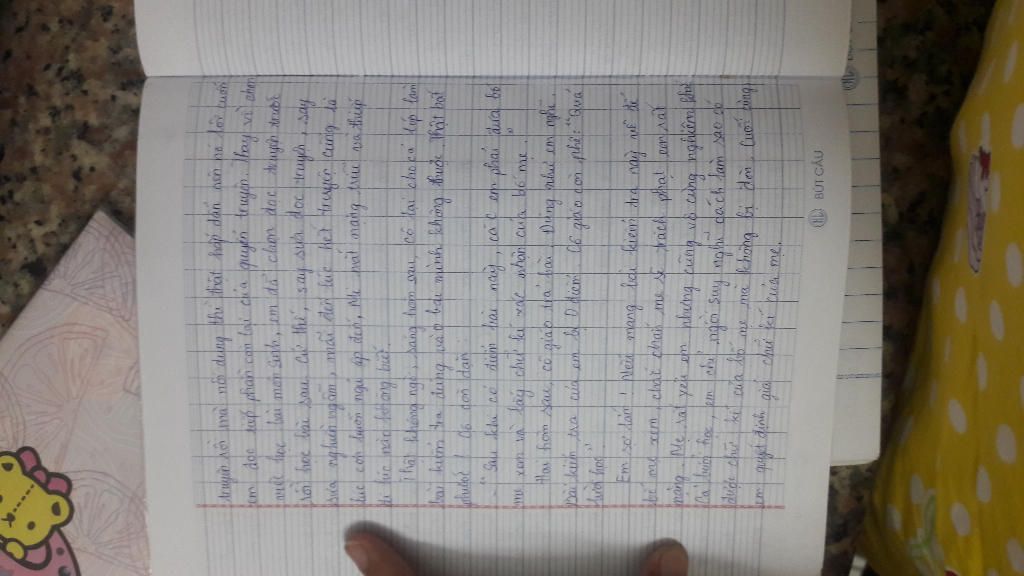 truyện rồi mà nội dung thì thật hấp dẫn nên nó lôi cuốn
em đọc tiếp phần còn lại của quyển truyện. Thay vì chăm
miệt học bài môn Sinh, em đã chọn đọc truyện trước
rồi học bài sau. Cứ thế, say sưa đọc truyện, say
sưa nghiền ngẫm, mãi đến lúc hết truyện cũng là
lúc cơn buồn ngủ ập đến, Mi mắt nặng trĩu và thiếp
đi lúc nào không biết.
Thật không ngờ, sáng hôm sau, cô lại cho cả lớp làm
bài kiểm tra đúng vào bài mình không thuộc. Thật thất
phước! Cô còn dặn:
- "Sau khi có điểm bài này, các em phải đưa bố
mẹ xem và lấy chữ kí xác nhận của bố mẹ."
Hai hôm sau, cô giáo trả bài. Đúng như em nghĩ.
Bài kiểm tra của em bị 0 điểm. Cô giáo còn phê: "Quá
lười học".
Em sợ lắm! Nếu mang bài kiểm tra này về để
bố mẹ xem, chắc chắn mẹ sẽ trách phạt em rất
nặng. Mẹ rất yêu em nhưng cũng vô cùng nghiêm khắc
Cả buổi học, em chỉ ngồi suy nghĩ cách làm sao có
được chữ kí của bố mẹ mà không bị đòn. Cuối cùng,
em quyết định giả chữ kí của mẹ.
BÚT CẦU